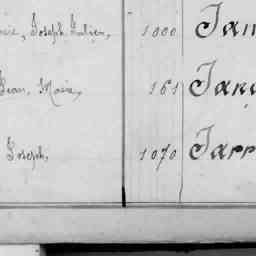 Joseph Julien, 1000 Jan
Jean Marie, 161 Jang
Joseph, 1070 Jarr